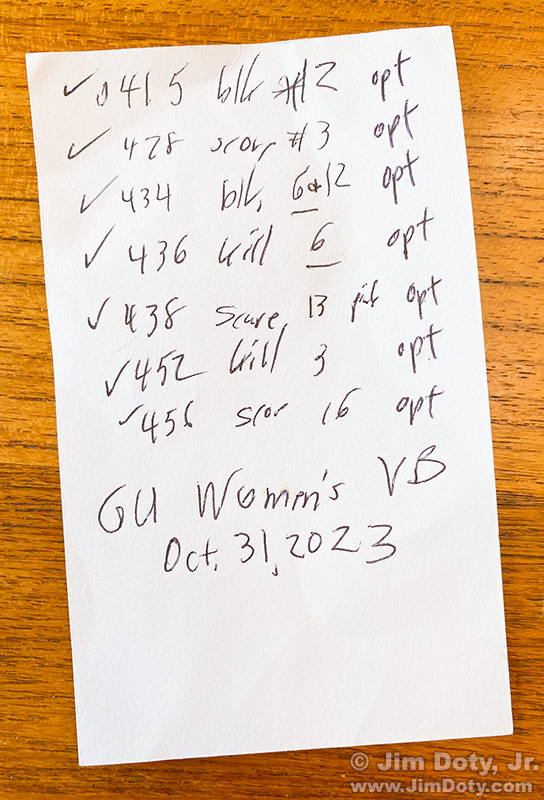 ✓ 0415 blk #12 opt
✓ 428 score #3 opt
✓ 434 blk, 6 & 12 opt
✓ 436 kill 6 opt
✓ 438 score, 13 opt
✓ 452 kill 3 opt
✓ 456 scor 16 opt
GU Women's VB
Oct. 31, 2023
© Jim Doty, Jr.
www.JimDoty.com